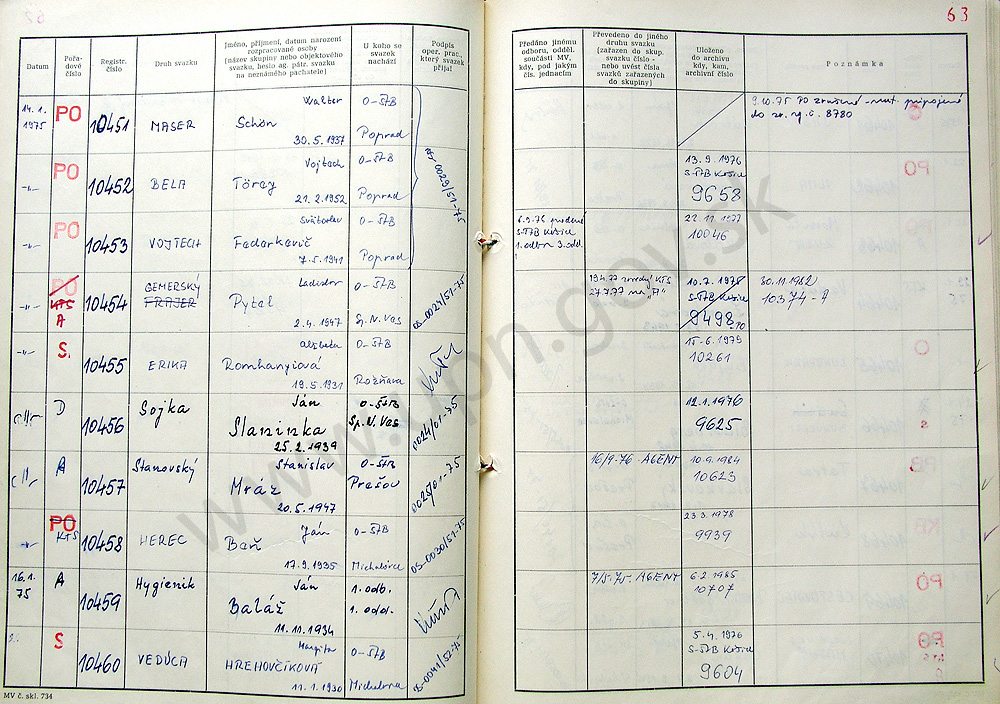 63
Datum
Pořa-
dové
číslo
Registr.
číslo
Druh svazku
Jméno, příjmení, datum narození
rozpracované osoby
(název skupiny nebo objektového
svazku, heslo ag. pátr. svazku
na neznámého pachatele)
U koho se
svazek
nachází
Podpis
oper. prac.,
který svazek
přijal
Předáno jinému
odboru, odděl.
součásti MV,
kdy, pod jakým
čís. jednacím
Převedeno do jiného
druhu svazku
(zařazen do skup.
svazku číslo -
nebo uvést čísla
svazků zařazených
do skupiny)
Uloženo
do archivu
kdy, kam,
archivní číslo
Poznámka
14.1.
1975
PO
10451
MASER
Walter
Schön
30.5.1937
O-ŠtB
Poprad
9.10.75 PO zrušené
8780
PO
10452
BELA
Vojtech
Töröy
21.2.1952
O-ŠtB
Poprad
0029/51-75
13.9.1976
S-ŠtB Košice
9658
PO
10453
VOJTECH
Fedorkovič
7.5.1941
O-ŠtB
Poprad
S-ŠtB Košice
1. odbor 3. odd.
22.11.1977
10046
PO
KTS
A
10454
GEMERSKÝ
FRAJER
Ladislav
Pytel
2.4.1947
O-ŠtB
Sp. N. Ves
OS-0024/51-75
27.7.77 na "A"
10.2.1975
S-ŠtB Košice
9498
30.11.1982
10374-A
S.
10455
ERIKA
Alžbeta
Romhanyiová
19.5.1931
O-ŠtB
Rožňava
15.6.1979
10261
D
10456
Sojka
Ján
Slaninka
25.2.1939
O-ŠtB
Sp. N. Ves
0024/01-75
12.1.1976
9625
A
10457
Stanovský
Stanislav
Mráz
20.5.1947
O-ŠtB
Prešov
0025/01-75
16/9-76 - AGENT
10.9.1984
10623
PO
KTS
10458
HEREC
Ján
Baň
17.9.1935
O-ŠtB
Michalovce
OS-0030/51-75
23.3.1978
9939
16.1.
75
A
10459
Hygienik
Ján
Baláž
11.11.1934
1. odb.
1. odd.
7/5-75. AGENT
6.2.1985
10707
S
10460
VEDÚCA
Margita
HREHOVČÍKOVÁ
11.1.1930
O-ŠtB
OS-0041/52-75
5.4.1976
S-ŠtB Košice
9604
MV č. skl. 734
www.upn.gov.sk